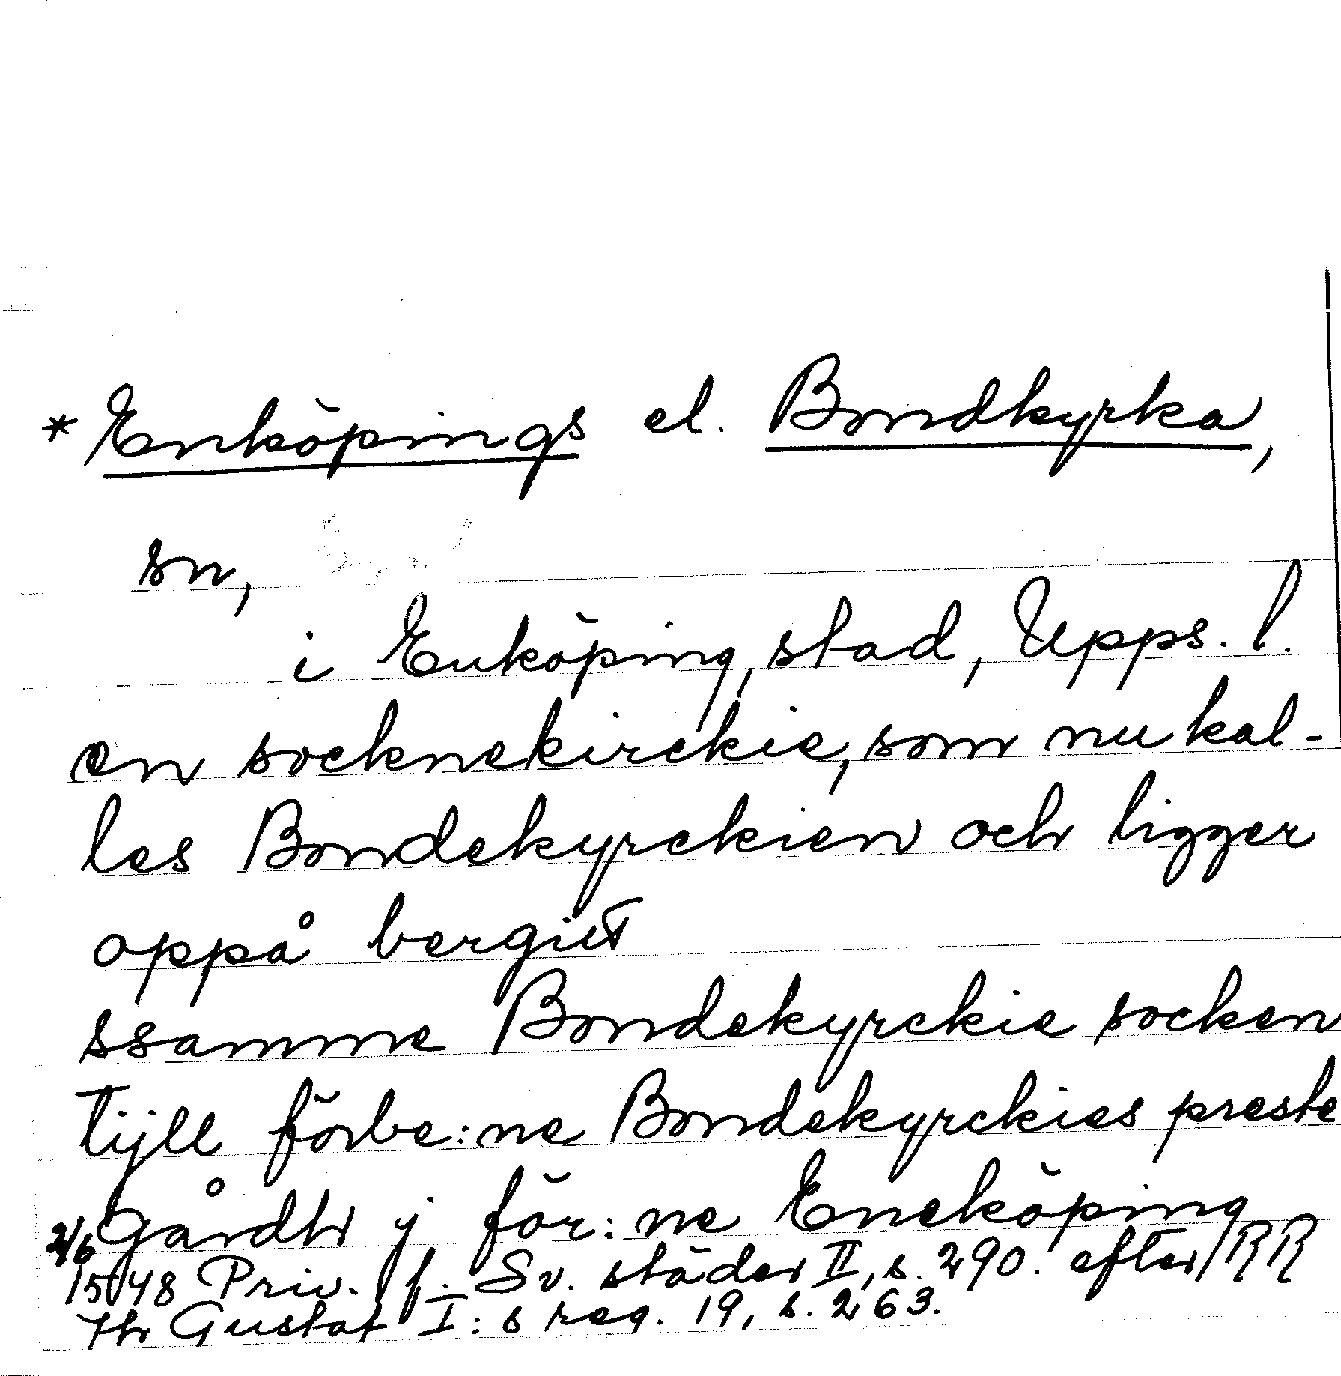 * Enköpings el. Bondkyrka,
sn,
i Enköping, stad, Upps. l.
en socknekirckie, som nu kal-
les Bondekyrckien och ligger
oppå bergit
ssamme Bondekyrckie socken
tijll förbe:ne Bondekyrckies preste
gårdh j för:ne Eneköping
2/6 1548 Priv. f. Sv. städer II, s. 290. efter RR
Gustaf I:s reg. 19, s. 263.